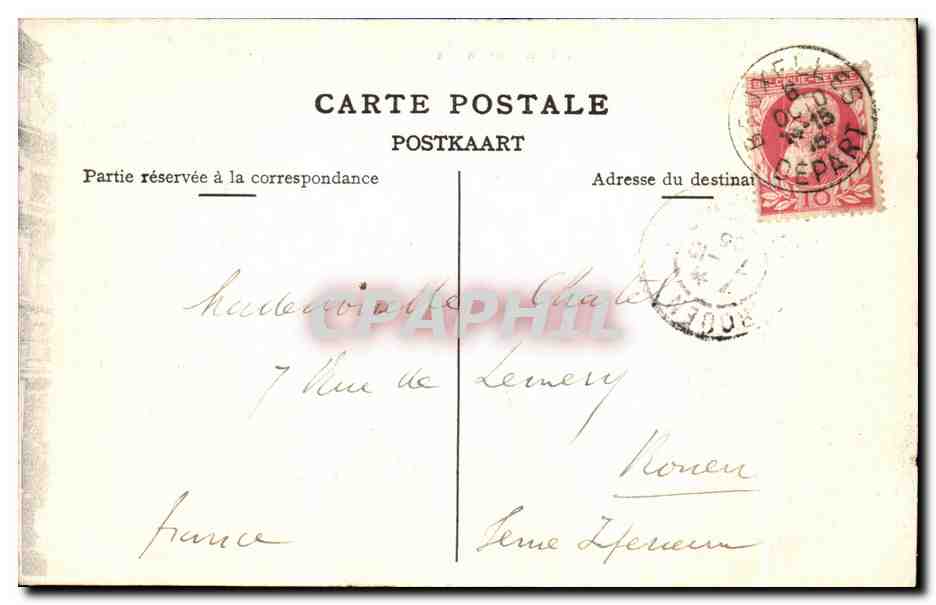 CARTE POSTALE
POSTKAART
Partie réservée à la correspondance
Adresse du destinat
BRUXELLES
6
OCTO
14-15
DEPART
10
ROUEN
CPAPHIL
Mademoiselle Chatel
7 Rue de Lemery
Rouen
France
Seine Inferieure